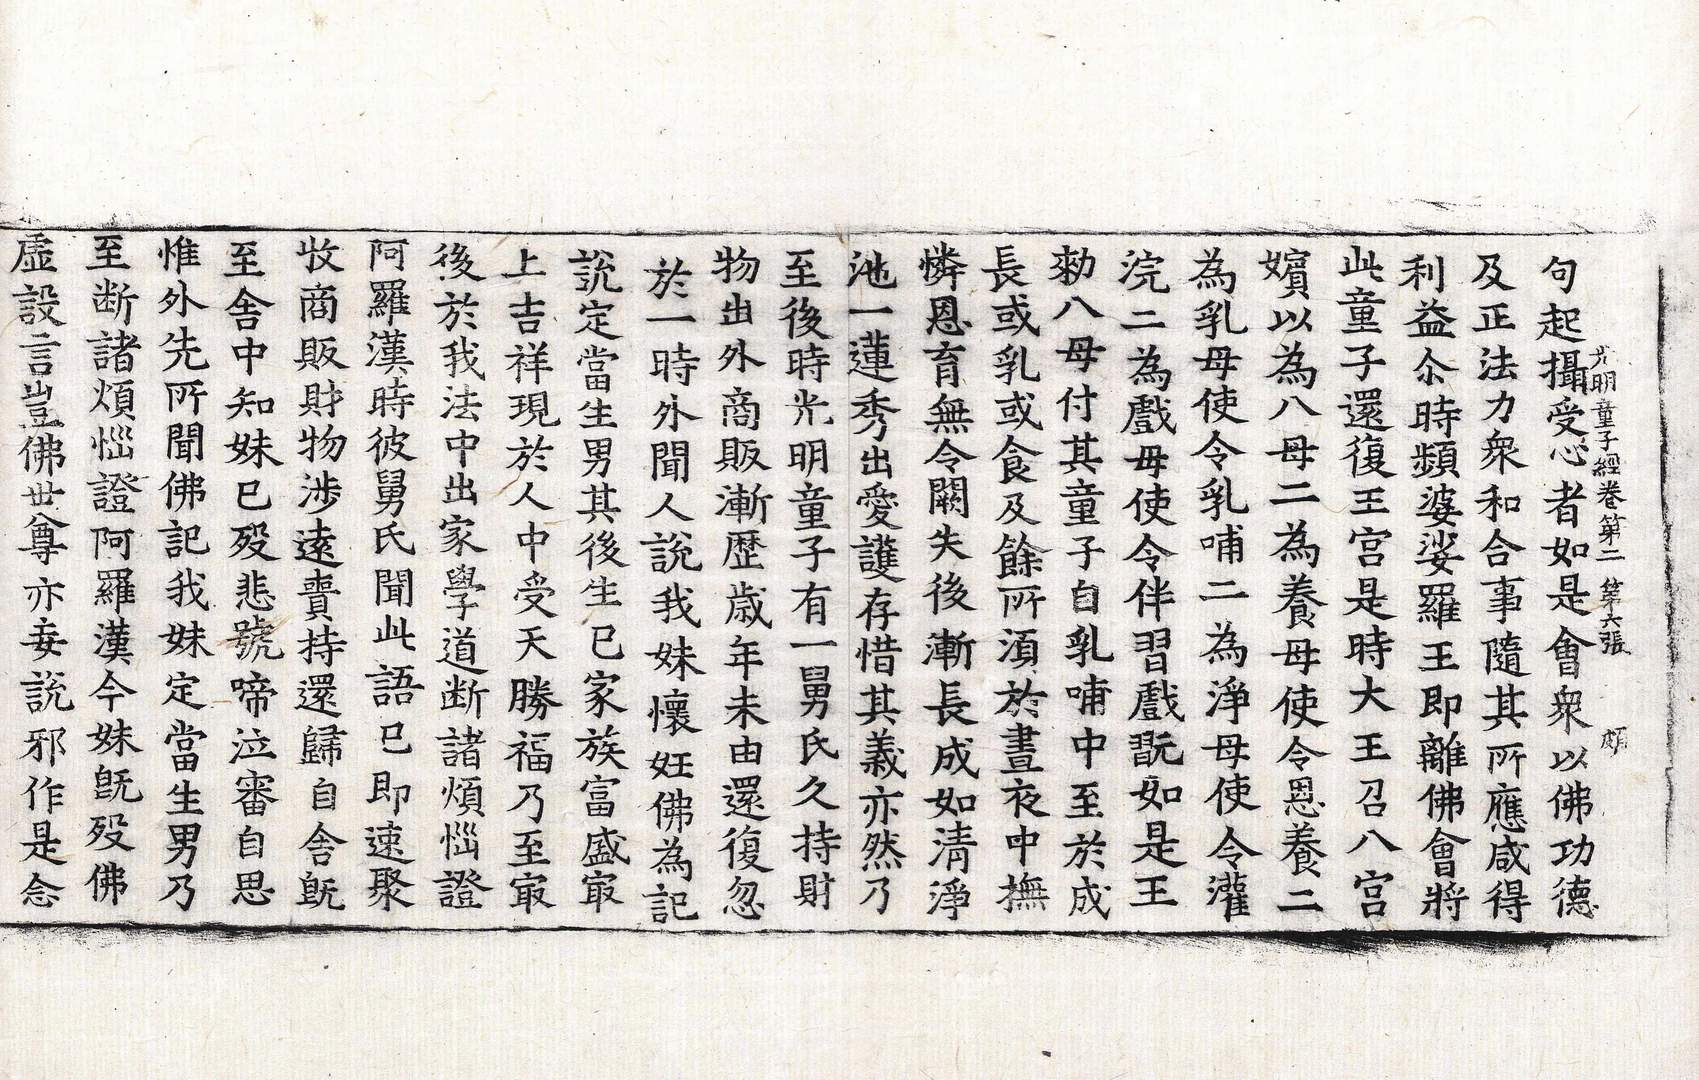 光明童子經卷第二 第六張 頗
句起攝受心者如是會衆以佛功德
及正法力衆和合事隨其所應咸得
利益尒時頻婆娑羅王即離佛會將
此童子還復王宮是時大王召八宮
嬪以為八母二為養母使令恩養二
為乳母使令乳哺二為淨母使令灌
浣二為戲母使令伴習戲翫如是王
勑八母付其童子自乳哺中至於成
長或乳或食及餘所須於晝夜中撫
憐恩育無令闕失後漸長成如清淨
池一蓮秀出愛護存惜其義亦然乃
至後時光明童子有一舅氏久持財
物出外商販漸歷歲年未由還復忽
於一時外聞人說我妹懷妊佛為記
說定當生男其後生已家族富盛冣
上吉祥現於人中受天勝福乃至冣
後於我法中出家學道斷諸煩惱證
阿羅漢時彼舅氏聞此語已即速聚
收商販財物涉遠賷持還歸自舍旣
至舍中知妹已歿悲號啼泣審自思
惟外先所聞佛記我妹定當生男乃
至断諸煩惱證阿羅漢今妹旣歿佛
虛設言豈佛世尊亦妄說邪作是念